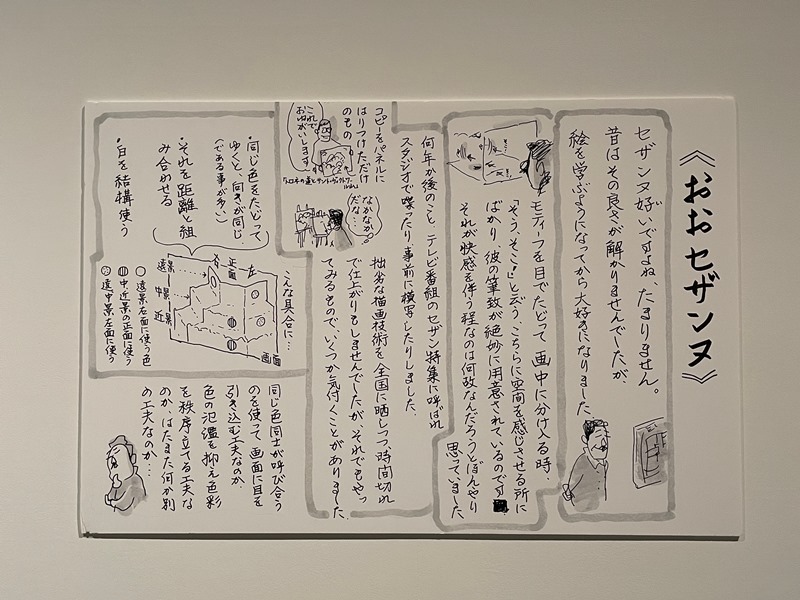 《おお セザンヌ》
セザンヌ好いですよね、たまりません。
昔はその良さが解かりませんでしたが、
絵を学ぶようになってから大好きになりました。
モティーフを目でたどって、画中に分け入る時、
「そう、そこ!」と云う、こちらに空間を感じさせる所に
ばかり、彼の筆致が絶妙に用意されているのです
それが快感を伴う程なのは何故なんだろうとぼんやり
思っていました
何年か後のこと、テレビ番組のセザンヌ特集に呼ばれ
スタジオで喋ったり、事前に模写したりしました。
コピーをパネルに
はりつけただけ
のもの
これで
おねがいします
なかなか
だな…
拙劣な描画技術を全国に晒しつつ、時間切れ
で仕上がりもしませんでしたが、それでもやっ
てみるもので、いくつか気付くことがありました
・同じ色をたどって
ゆくと、向きが同じ、
(である事が多い)
・それを距離と組
み合わせる
・白を結構使う
こんな具合に…
右
正面
左
遠景
中景
近景
画面
遠景左面に使う色
中近景の正面に使う
遠中景左面に使う
同じ色同士が呼び合う
のを使って画面に目を
引き込む工夫なのか
色の氾濫を抑え色彩
を秩序立てる工夫な
のか、はたまた何か別
の工夫なのか…